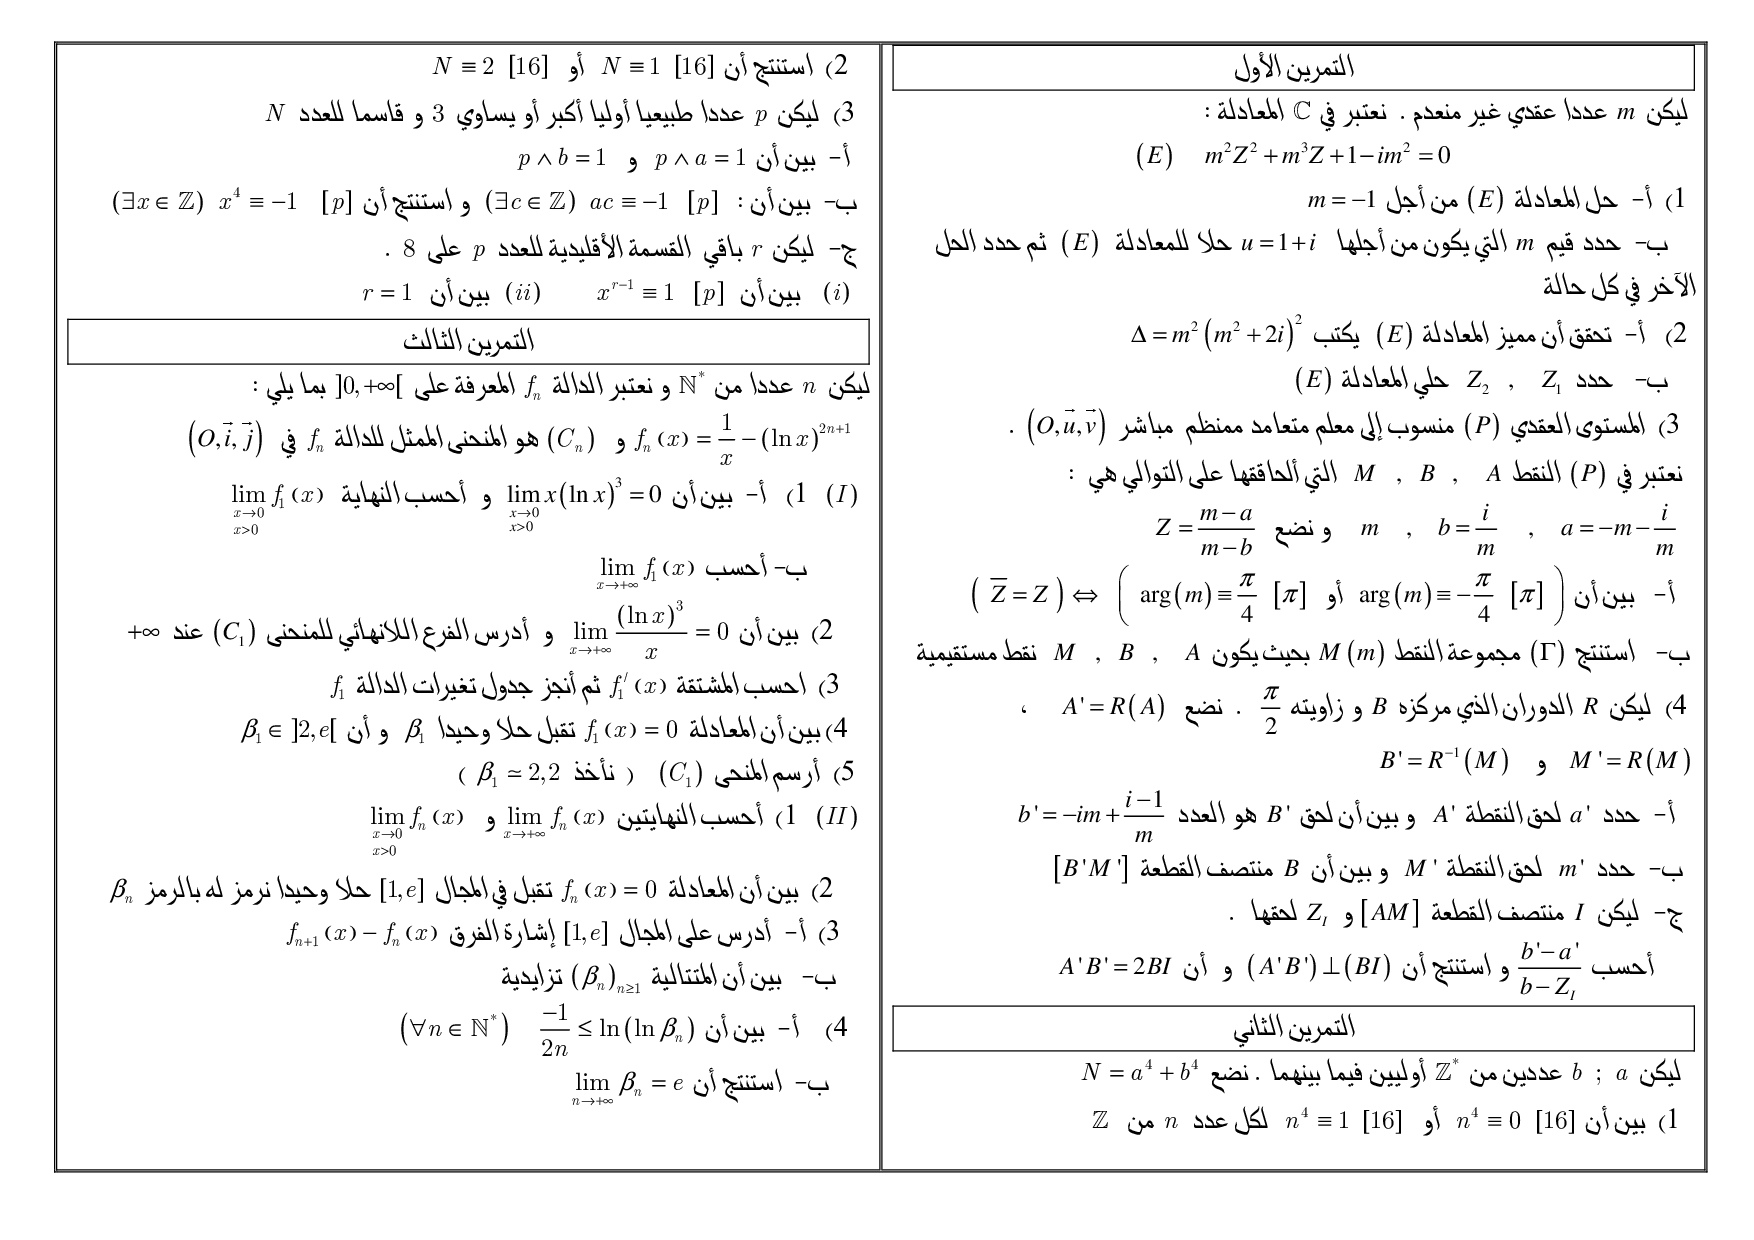 التمرين الأول
ليكن m عددا عقدي غير منعدم . نعتبر في ℂ المعادلة :
(E) m²Z² + m³Z + 1 − im² = 0
1) أ- حل المعادلة (E) من أجل m = −1
ب- حدد قيم m التي يكون من أجلها u = 1 + i حلا للمعادلة (E) ثم حدد الحل
الآخر في كل حالة
2) أ- تحقق أن مميز المعادلة (E) يكتب Δ = m²(m² + 2i)²
ب- حدد Z₁ , Z₂ حلي المعادلة (E)
3) المستوى العقدي (P) منسوب إلى معلم متعامد ممنظم مباشر (O, u⃗, v⃗) .
نعتبر في (P) النقط A , B , M التي ألحاقها على التوالي هي :
a = −m − i/m , b = i/m , m و نضع Z = (m − a)/(m − b)
أ- بين أن (Z̄ = Z) ⇔ ( arg(m) ≡ π/4 [π] أو arg(m) ≡ −π/4 [π] )
ب- استنتج (Γ) مجموعة النقط M(m) بحيث يكون A , B , M نقط مستقيمية
4) ليكن R الدوران الذي مركزه B و زاويته π/2 . نضع A' = R(A) ،
M' = R(M) و B' = R⁻¹(M)
أ- حدد a' لحق النقطة A' و بين أن لحق B' هو العدد b' = −im + (i − 1)/m
ب- حدد m' لحق النقطة M' و بين أن B منتصف القطعة [B'M']
ج- ليكن I منتصف القطعة [AM] و Z_I لحقها .
أحسب (b' − a')/(b − Z_I) و استنتج أن (A'B') ⊥ (BI) و أن A'B' = 2BI
التمرين الثاني
ليكن a ; b عددين من ℤ* أوليين فيما بينهما . نضع N = a⁴ + b⁴
1) بين أن n⁴ ≡ 0 [16] أو n⁴ ≡ 1 [16] لكل عدد n من ℤ
2) استنتج أن N ≡ 1 [16] أو N ≡ 2 [16]
3) ليكن p عددا طبيعيا أوليا أكبر أو يساوي 3 و قاسما للعدد N
أ- بين أن p ∧ a = 1 و p ∧ b = 1
ب- بين أن : (∃c ∈ ℤ) ac ≡ −1 [p] و استنتج أن (∃x ∈ ℤ) x⁴ ≡ −1 [p]
ج- ليكن r باقي القسمة الأقليدية للعدد p على 8 .
(i) بين أن x^(r−1) ≡ 1 [p] (ii) بين أن r = 1
التمرين الثالث
ليكن n عددا من ℕ* و نعتبر الدالة fₙ المعرفة على ]0, +∞[ بما يلي :
fₙ(x) = 1/x − (ln x)^(2n+1) و (Cₙ) هو المنحنى الممثل للدالة fₙ في (O, i⃗, j⃗)
(I) 1) أ- بين أن lim_{x→0, x>0} x(ln x)³ = 0 و أحسب النهاية lim_{x→0, x>0} f₁(x)
ب- أحسب lim_{x→+∞} f₁(x)
2) بين أن lim_{x→+∞} (ln x)³/x = 0 و أدرس الفرع اللانهائي للمنحنى (C₁) عند +∞
3) احسب المشتقة f₁′(x) ثم أنجز جدول تغيرات الدالة f₁
4) بين أن المعادلة f₁(x) = 0 تقبل حلا وحيدا β₁ و أن β₁ ∈ ]2, e[
5) أرسم المنحى (C₁) ( نأخذ β₁ ≃ 2,2 )
(II) 1) أحسب النهايتين lim_{x→+∞} fₙ(x) و lim_{x→0, x>0} fₙ(x)
2) بين أن المعادلة fₙ(x) = 0 تقبل في المجال [1, e] حلا وحيدا نرمز له بالرمز βₙ
3) أ- أدرس على المجال [1, e] إشارة الفرق fₙ₊₁(x) − fₙ(x)
ب- بين أن المتتالية (βₙ)ₙ≥₁ تزايدية
4) أ- بين أن (∀n ∈ ℕ*) −1/2n ≤ ln(ln βₙ)
ب- استنتج أن lim_{n→+∞} βₙ = e